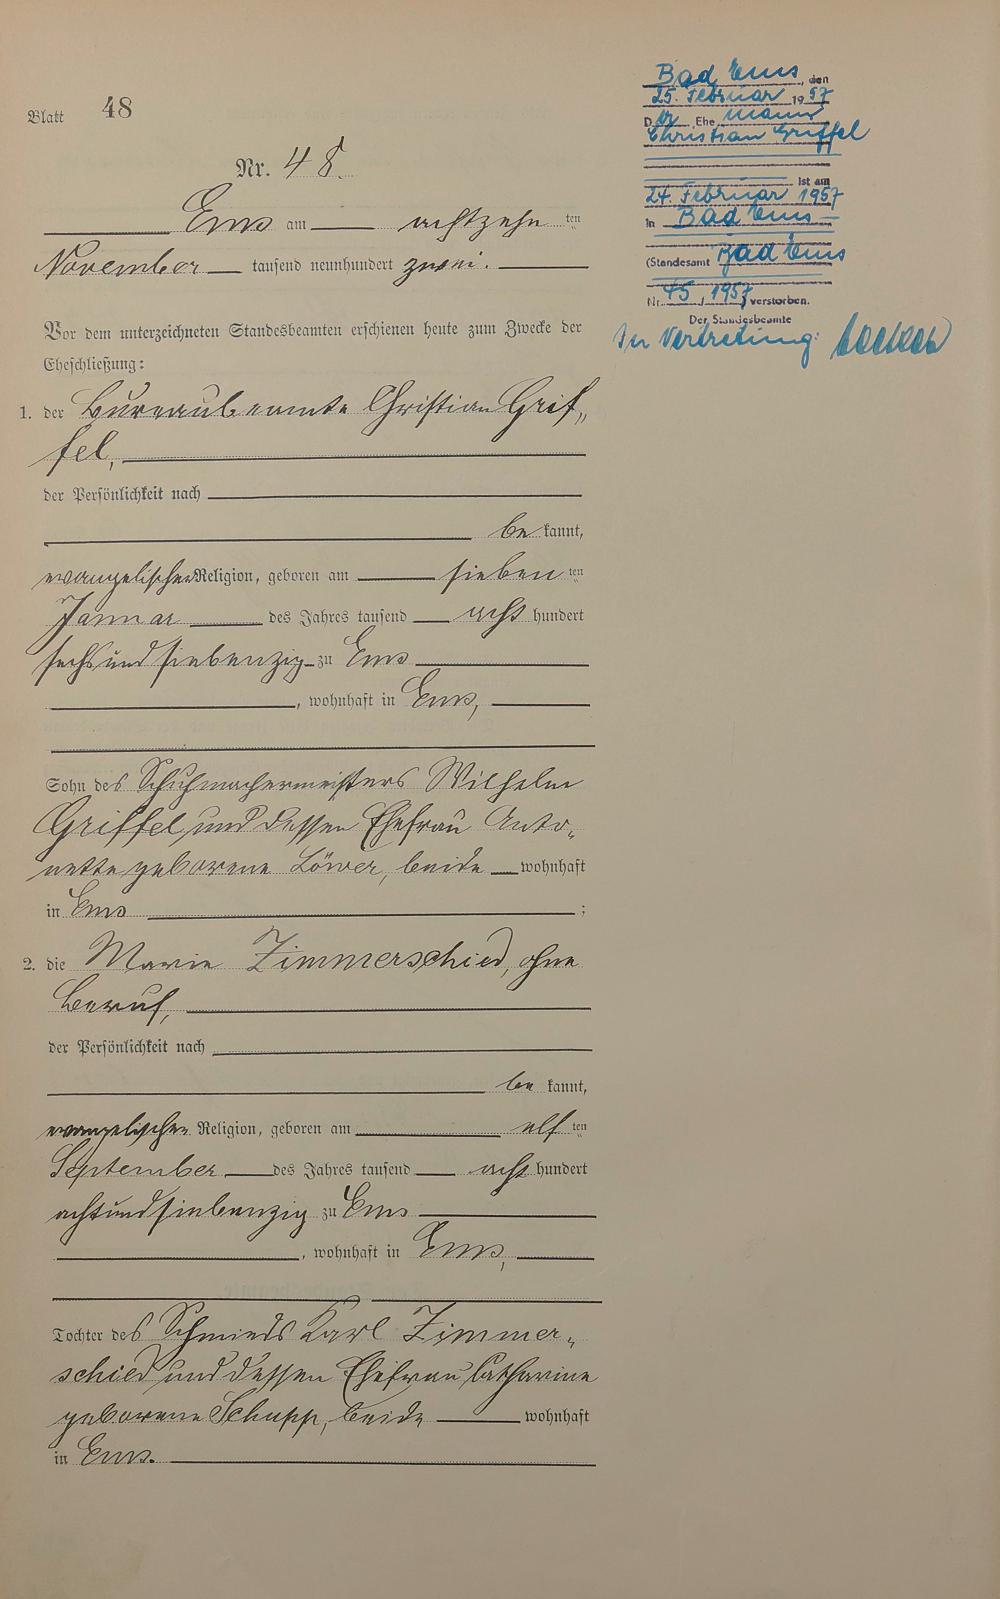 Blatt 48
Nr. 48.
Ems am achtzehn ten
November tausend neunhundert zwei.
Vor dem unterzeichneten Standesbeamten erschienen heute zum Zwecke der
Eheschließung:
1. der Bureaubeamte Christian Grif„
fel,
der Persönlichkeit nach
be kannt,
evangelischer Religion, geboren am sieben ten
Januar des Jahres tausend acht hundert
sechsundsiebenzig zu Ems
, wohnhaft in Ems,
Sohn des Schuhmachermeisters Wilhelm
Griffel und dessen Ehefrau Anto„
nette geborene Löwer, beide wohnhaft
in Ems ;
2. die Marie Zimmerschied, ohne
Beruf,
der Persönlichkeit nach
be kannt,
evangelischer Religion, geboren am elf ten
September des Jahres tausend acht hundert
achtundsiebenzig zu Ems
, wohnhaft in Ems,
Tochter des Schmieds Karl Zimmer„
schied und dessen Ehefrau Catharine
geborene Schupp, beide wohnhaft
in Ems.
Bad Ems, den
25. Februar 1957
Der Ehemann
Christian Griffel
ist am
24. Februar 1957
in Bad Ems
(Standesamt Bad Ems
Nr. 45, 1957 verstorben.
Der Standesbeamte
In Vertretung: